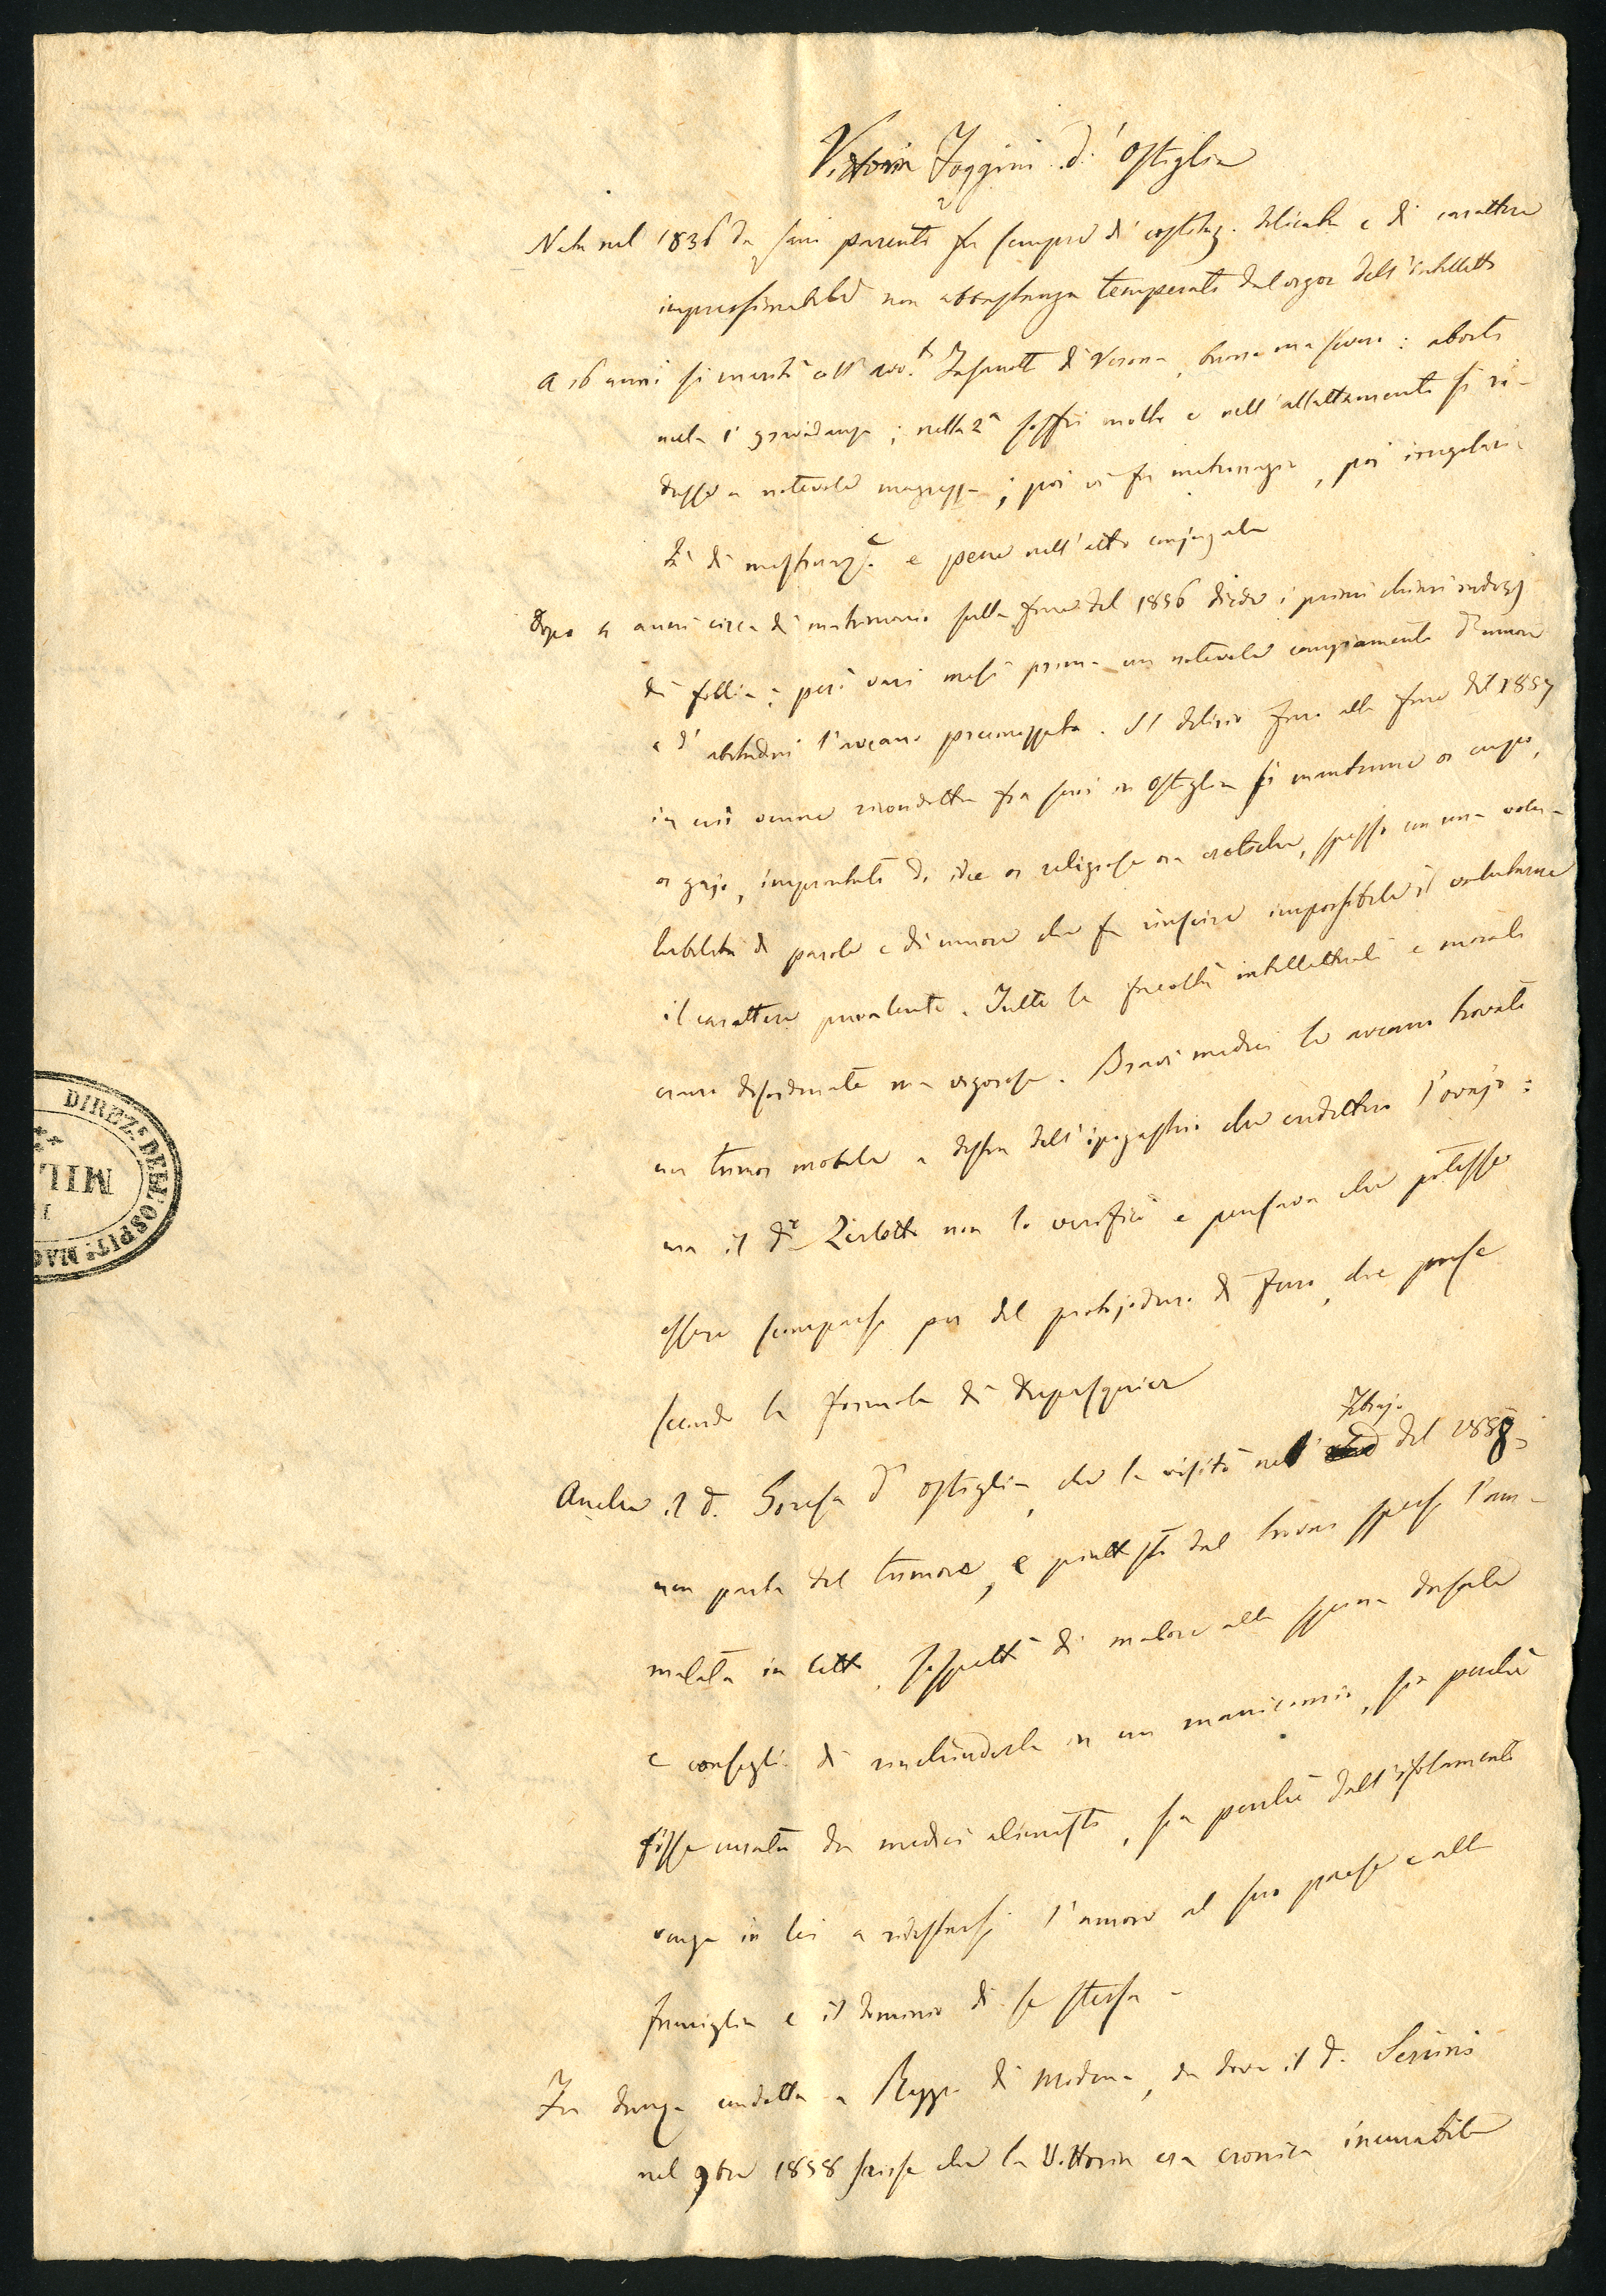 Vittoria Foggini d'Ostiglia
Nata nel 1836 da sani parenti fu sempre di costituz. delicata e di carattere
impressionabile non abbastanza temperato dal vigor dell'intelletto
A 16 anni si maritò coll' avv.to di Verona, buono ma severo: abortì
nella 1a gravidanza; nella 2a soffrì molto e nell'allattamento si ri-
dusse a notevole magrezza; poi vi fu metrorragia, poi irregolari-
tà di mestruaz.e e pene nell'atto conjugale
Dopo 4 anni circa di matrimonio sulla fine del 1856 diede i primi chiari indizj
di follia; però vari mesi prima un notevole cangiamento d'umore
e d'abitudini l'aveano preconizzata. Il delirio fino alla fine del 1857
in cui venne ricondotta fra suoi in Ostiglia si mantenne or cupo,
or gajo, improntato di idee or religiose ora erotiche, spesso con una volu-
bilità di parole e di umore che fa riuscire impossibile il valutarne
il carattere prevalente. Tutte le facoltà intellettuali e morali
erano disordinate ma vigorose. Bravi medici le aveano trovato
un tumor mobile a destra dell'ipogastrio che credettero l'ovajo:
ma il d.r Zerlotto non lo verificò e pensava che potesse
essere scomparso per del protojoduro di ferro, che prese
secondo la formola di Dupasquier
Anche il d. Soresa d'Ostiglia, che la visitò nel Febrajo del 1858,
non parla del tumore, e piuttosto dal trovar spesso l'am-
malata in letto, sospettò di malore alla spina dorsale
e consigliò di rinchiuderla in un manicomio, sia perchè
fosse curata da medici alienisti, sia perchè dall'isolamento
venga in lei a ridestarsi l'amore al suo paese e alla
famiglia e il dominio di se stessa -
Fu dunque condotta a Reggio di Modena, da dove il d.
nel 9bre 1858 scrisse che la Vittoria era cronica incurabile
DIREZ.e DELL'OSPIT.e MAG
MIL